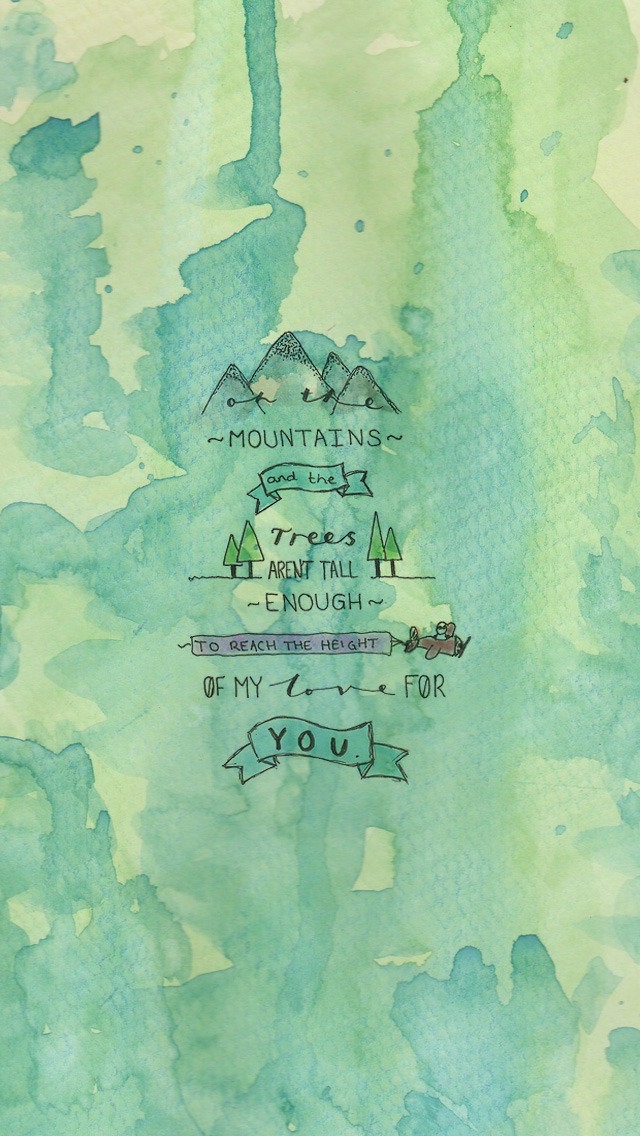 oh the
~MOUNTAINS~
and the
Trees
ARENT TALL
~ENOUGH~
TO REACH THE HEIGHT
ØF MY love FØR
YOU.